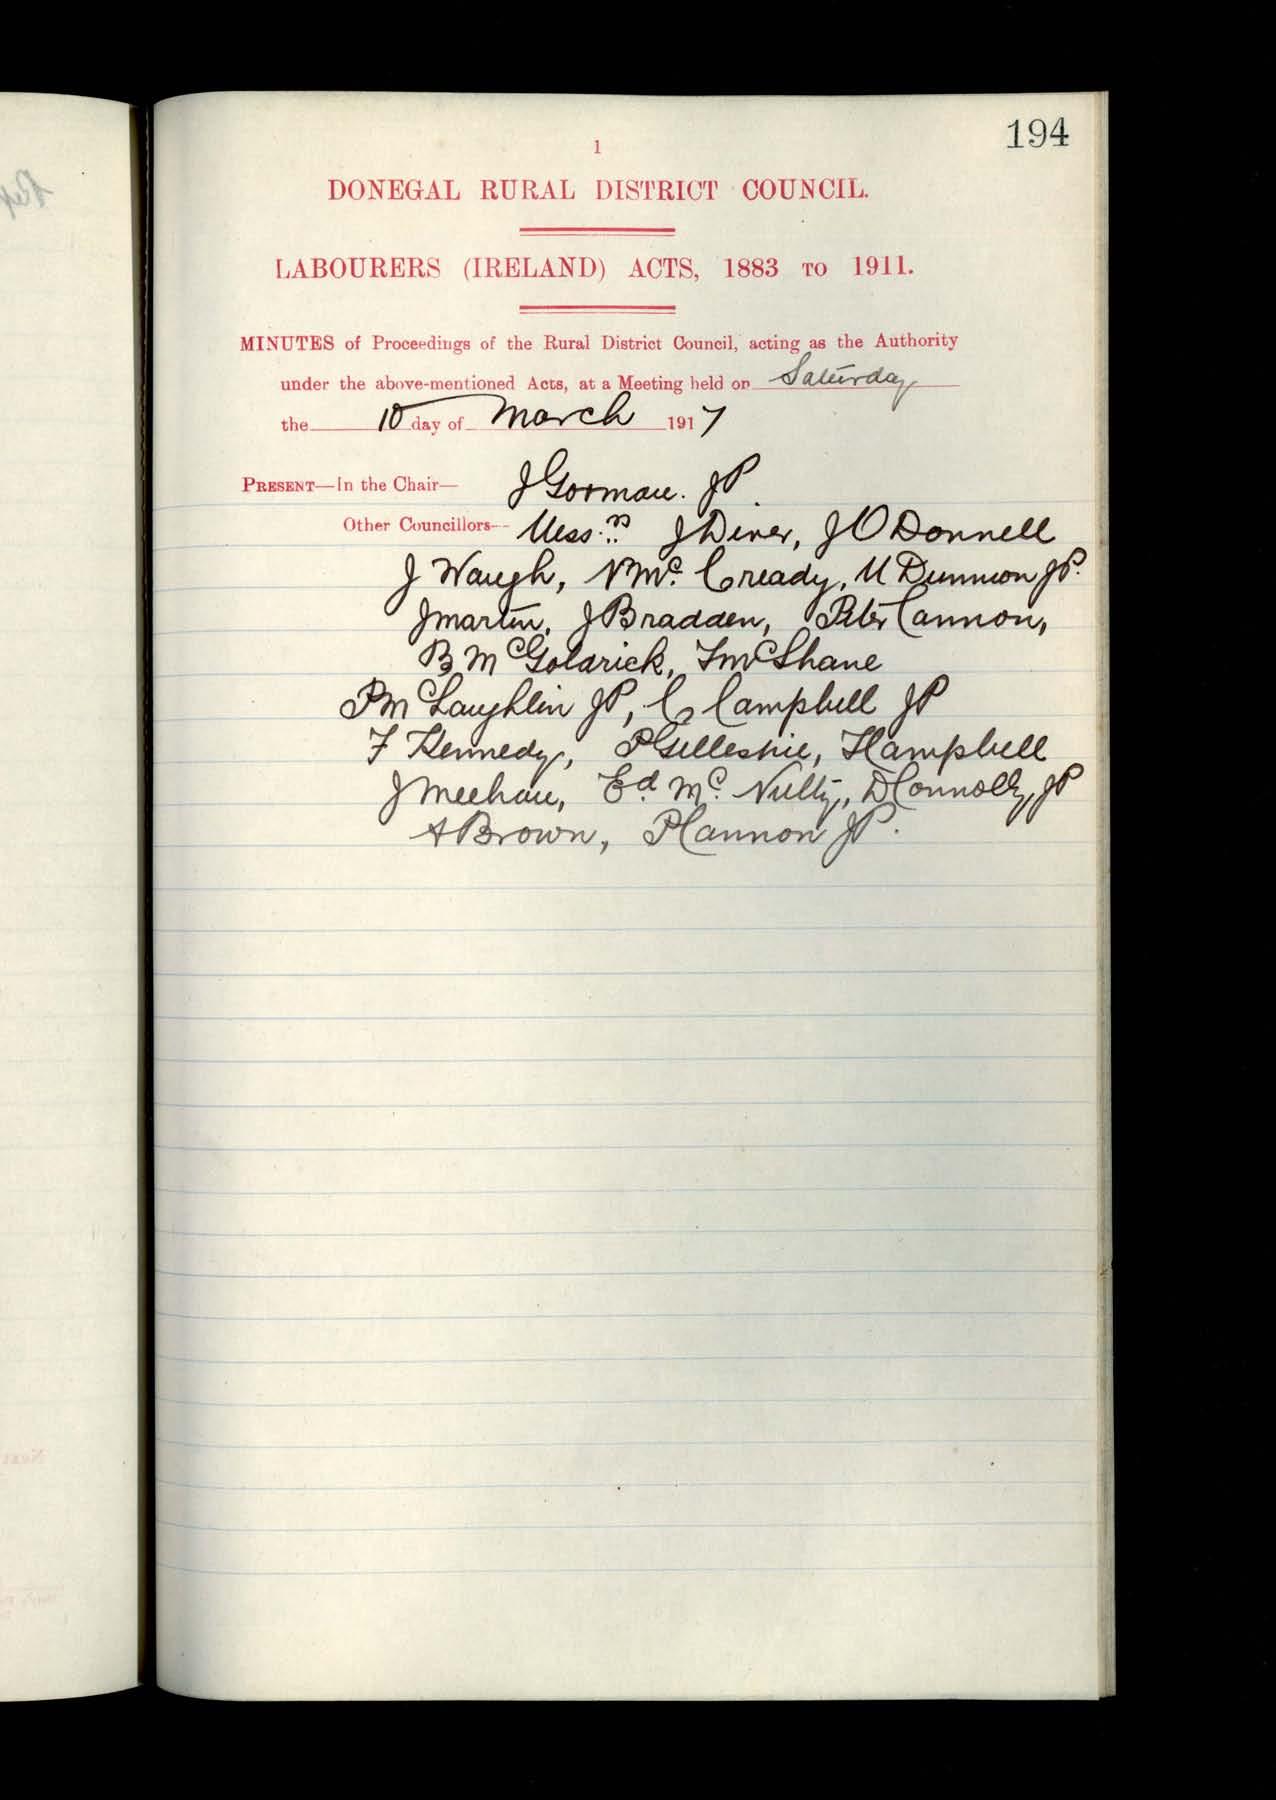 194
1
DONEGAL RURAL DISTRICT COUNCIL.
LABOURERS (IRELAND) ACTS, 1883 TO 1911.
MINUTES of Proceedings of the Rural District Council, acting as the Authority
under the above-mentioned Acts, at a Meeting held on Saturday
the 10 day of March 1917
PRESENT—In the Chair— J Gorman. JP.
Other Councillors— Messrs J Diver, J O Donnell
J Waugh, N McCready, M Dunnion JP.
J Martin, J Bradden, Peter Cannon,
B McGoldrick, T McShane
P McLaughlin JP, C Campbell JP
F Kennedy, P Gillespie, H Campbell
J Meehan, Ed. McNulty, D Connolly, JP
A Brown, P Cannon JP.